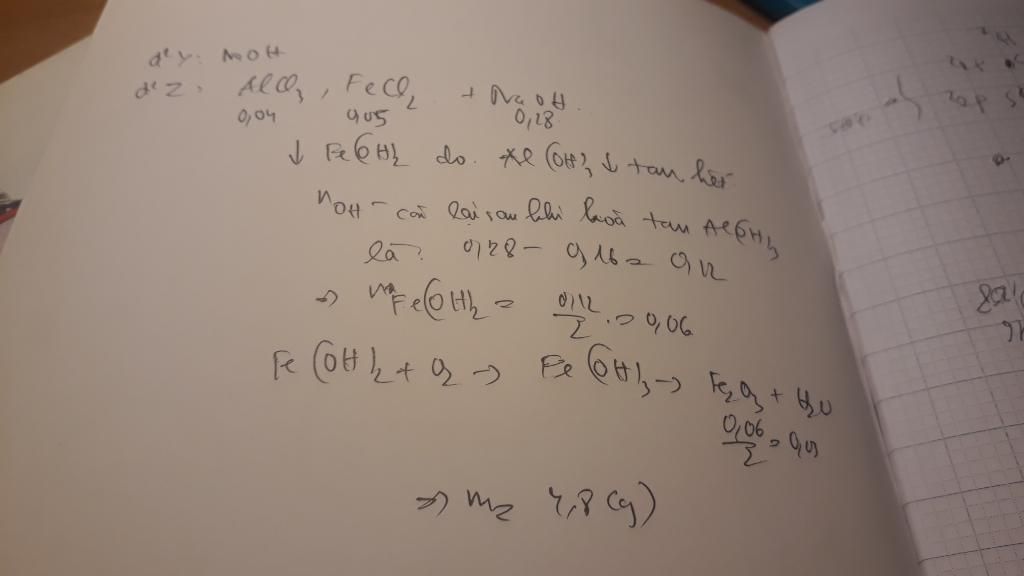 d² Y: MOH
d² Z: AlCl3, FeCl2 + NaOH.
0,04 0,05 0,28
↓ Fe(OH)2 do Al(OH)3 ↓ tan hết
nOH- còn lại sau khi hoà tan Al(OH)3
là: 0,28 - 0,16 = 0,12
=> nFe(OH)2 = 0,12/2 = 0,06
Fe(OH)2 + O2 → Fe(OH)3 → Fe2O3 + H2O
0,06/2 = 0,03
=> m = 4,8 (g)